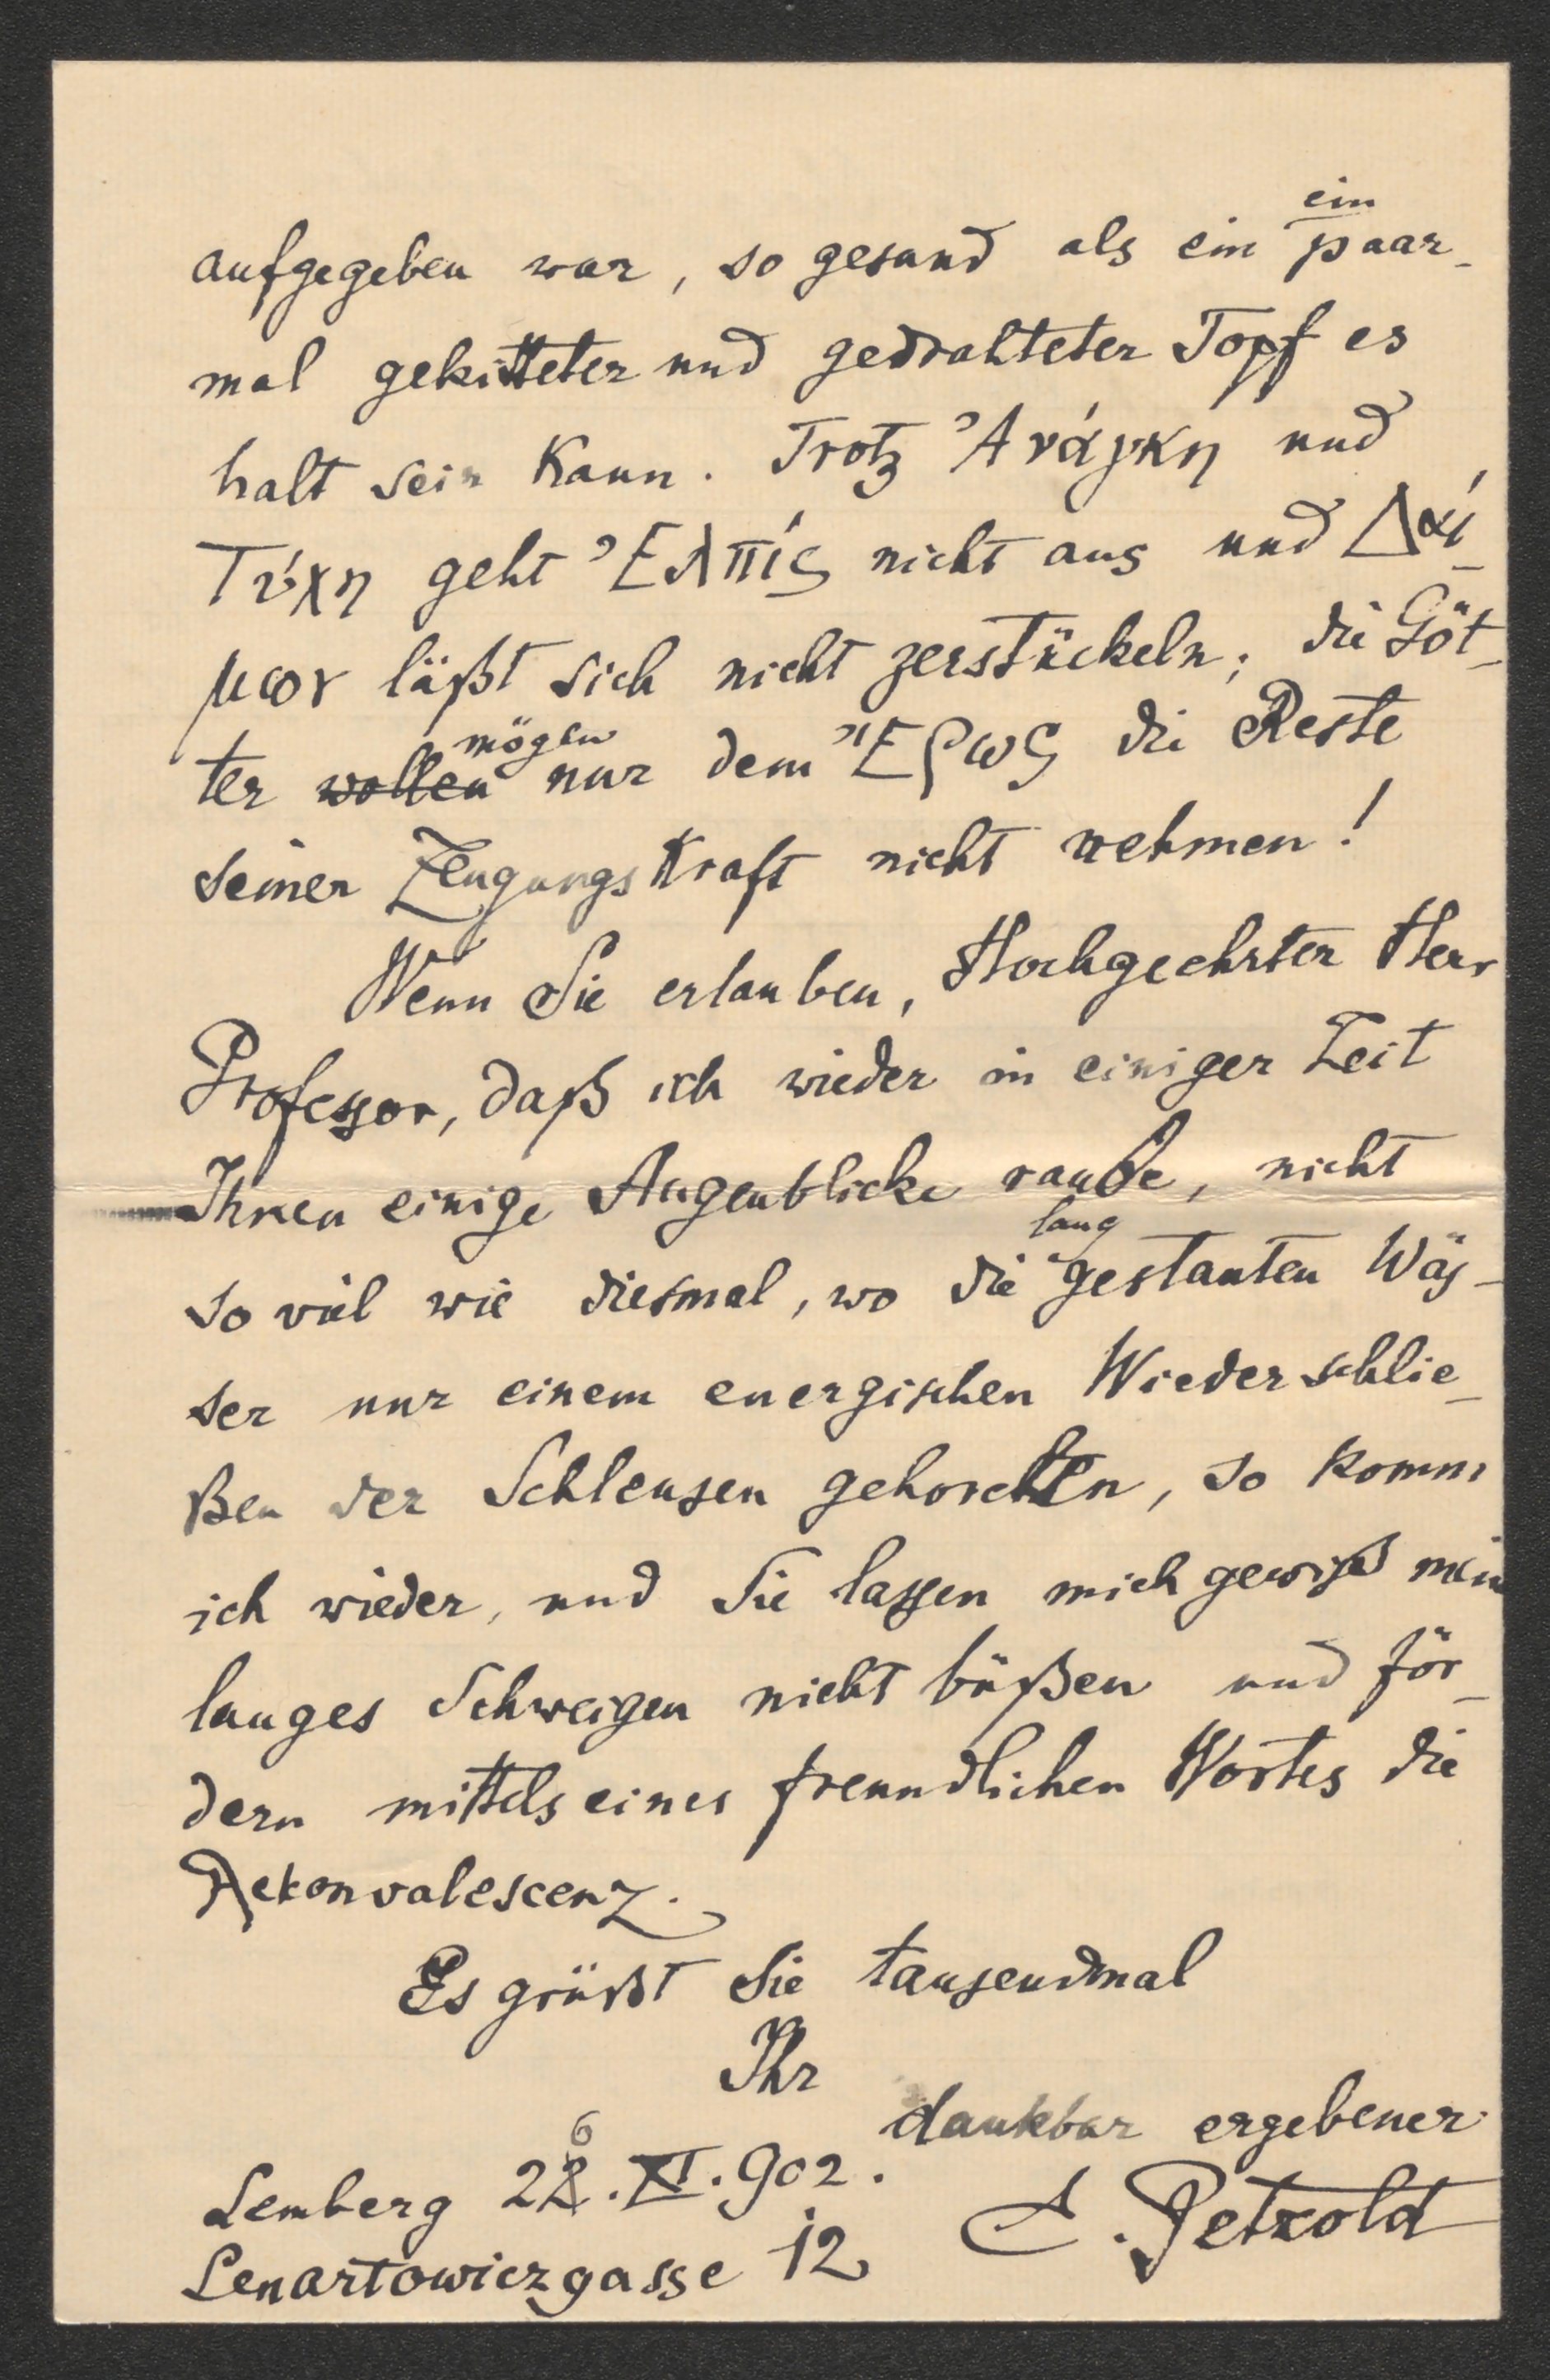 aufgegeben war, so gesund als ein ein paar-
mal gekitteter und gedrahteter Topf es
halt sein kann. Trotz Ἀνάγκη und
Τύχη geht Ἐλπίς nicht aus und Δαί-
μων läßt sich nicht zerstückeln; die Göt-
ter wollen mögen nur dem Ἔρως die Reste
seiner Zeugungskraft nicht nehmen!
Wenn Sie erlauben, Hochgeehrter Herr
Professor, daß ich wieder in einiger Zeit
Ihnen einige Augenblicke raube, nicht
so viel wie diesmal, wo die lang gestauten Wäs-
ser nur einem energischen Wiederschlie-
ßen der Schleusen gehorchten, so komm
ich wieder, und Sie lassen mich gewiß mein
langes Schweigen nicht büßen und för-
dern mittels eines freundlichen Wortes die
Rekonvalescenz.
Es grüßt Sie tausendmal
Ihr
dankbar ergebener
E. Petzold
Lemberg 26.XI.902.
Lenartowiczgasse 12